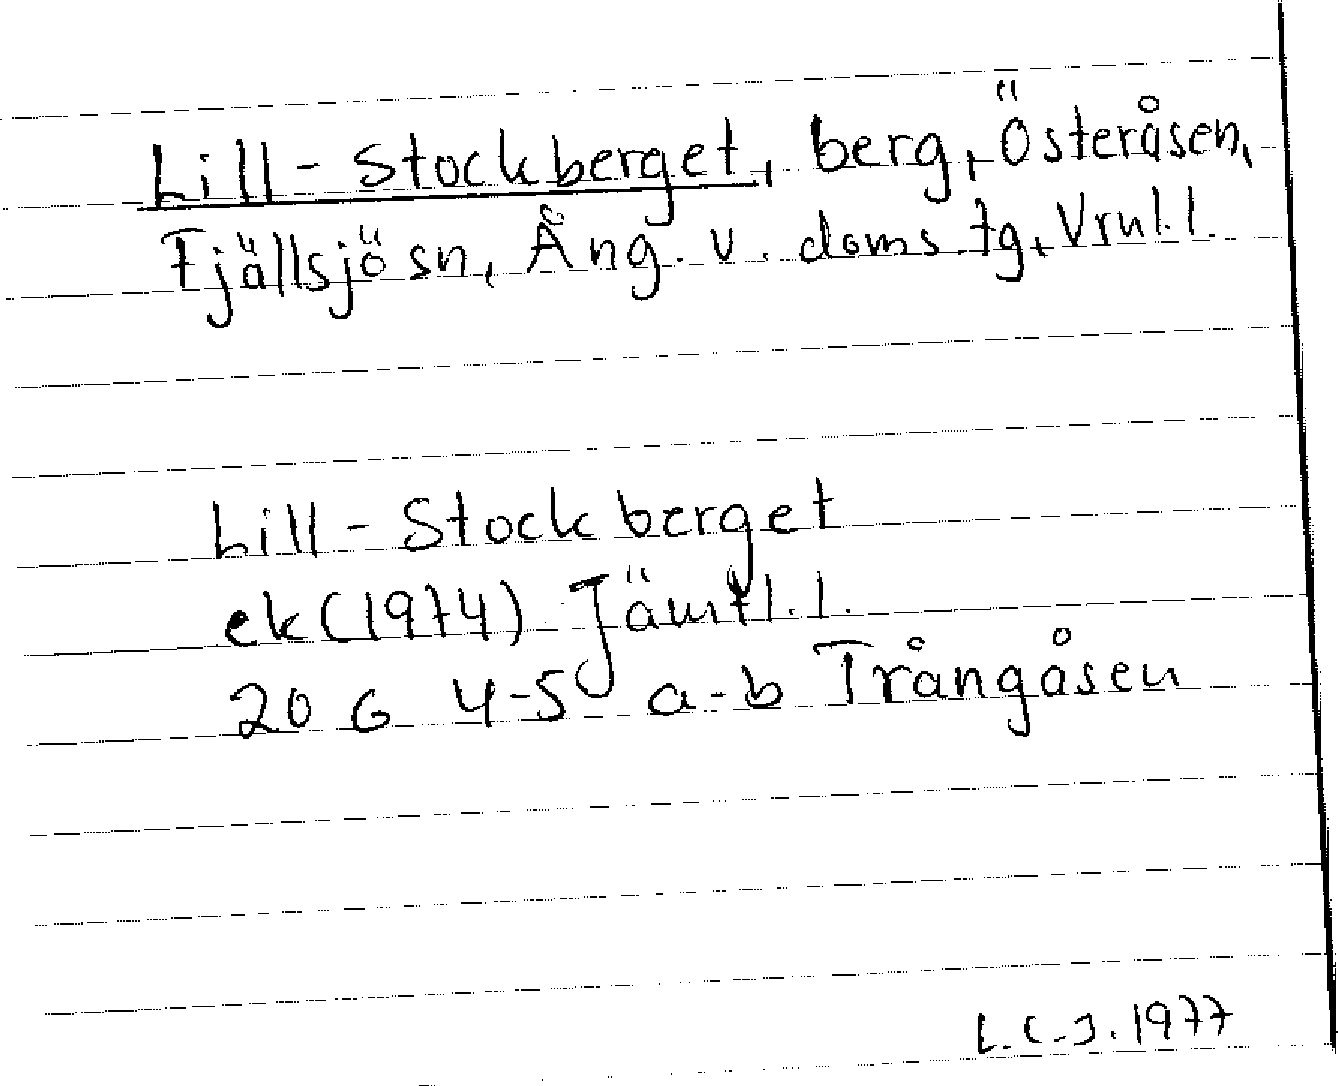 Lill-Stockberget, berg, Österåsen,
Fjällsjö sn, Ång. v. doms.tg, Vrnl.l.
Lill-Stockberget
ek(1974) Jämtl.l.
20 G 4-5 a-b Trångåsen
L.C.J. 1977